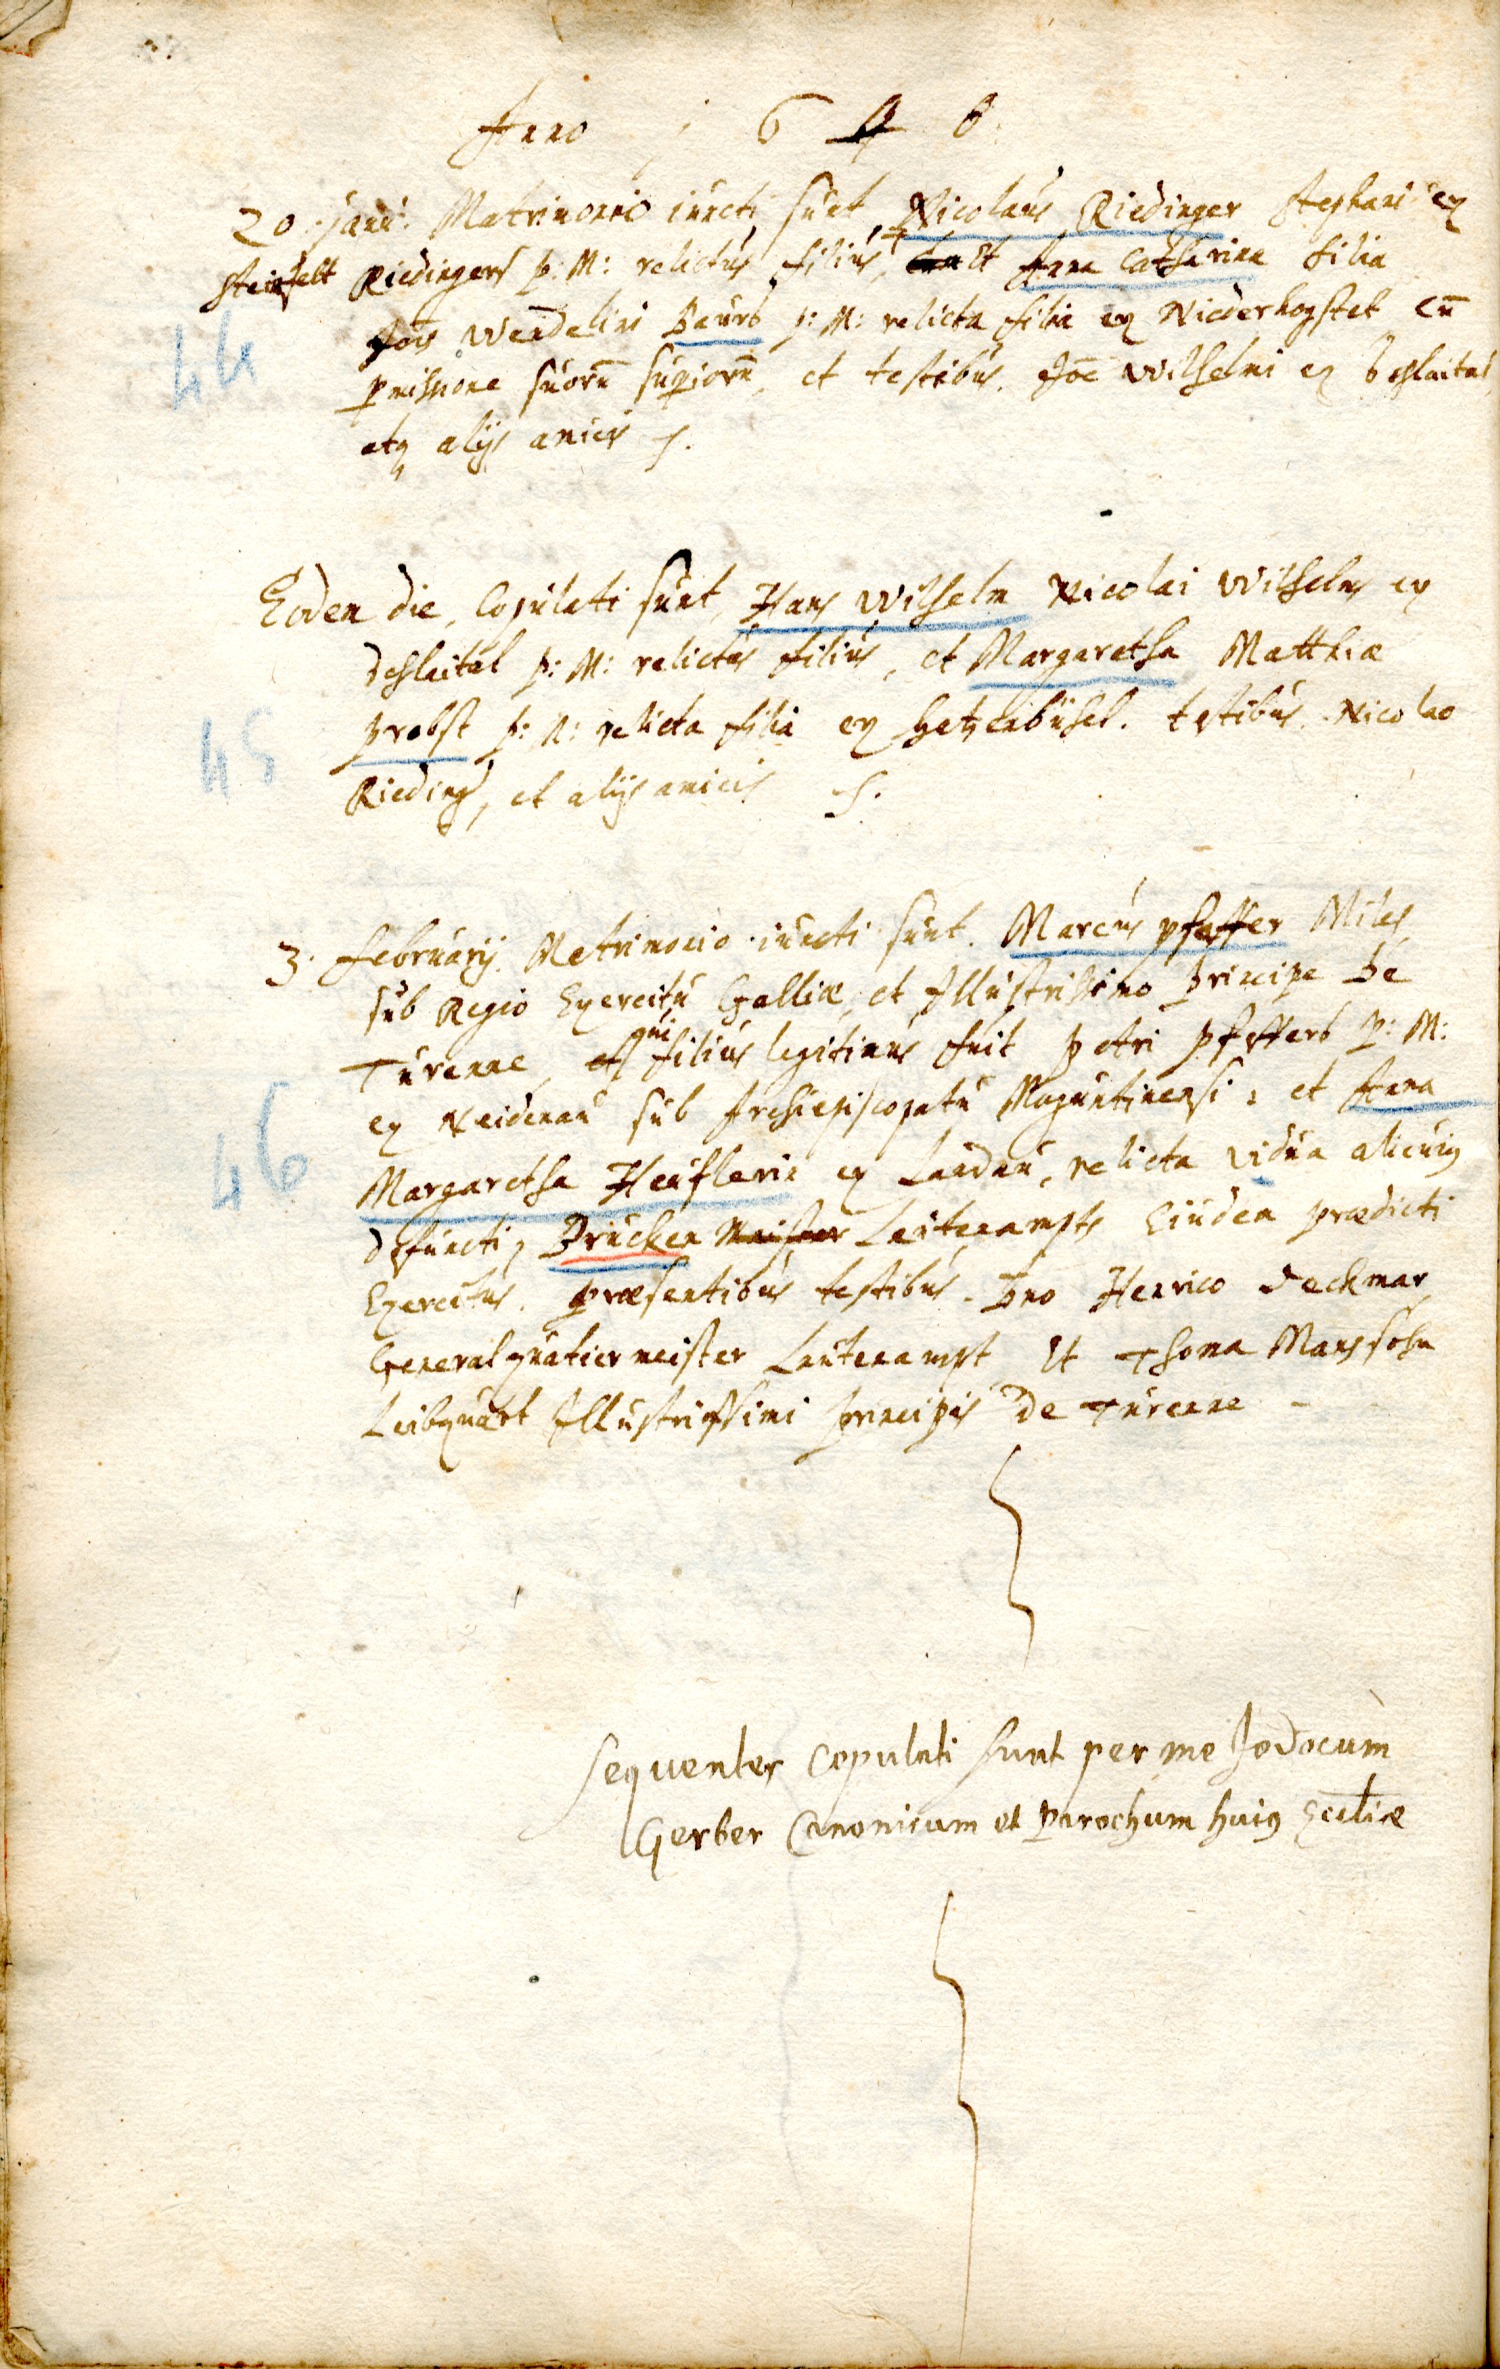 Anno 1648
20 Janu: Matrimonio iuncti sunt, Nicolaus Riedinger Stephani ex
Steinfelt Riedingers p: M: relictus filius, et Anna Catharina filia
Jois Wendelini Baurs p: M: relicta filia ex Niederhogstet cū
p̱missione suorū suꝑiorū, et testibus. Joe Wilhelmi ex
atq alijs amicis
44
Eodem die, Copulati sunt, Hans Wilhelm Nicolai Wilhelms ex
Dchleital p: M: relictus filius, et Margaretha Matthiæ
Probst p: M: relicta filia ex Hatzenbühel. testibus. Nicolao
Rieding, et alijs amicis
45
3. Februarij. Matrimonio iuncti sunt. Marcus Pfeffer Miles
sub Regio Exercitu Galliæ, et Illustrissimo Principe De
Turenne, qui filius legitimus fuit Petri Pfeffers P: M:
ex Neidenau sub Archiepiscopatu Moguntinensi: et Anna
Margaretha Heuflerin ex Landau, relicta vidua alicuiꝰ
defuncti, Brucken Meister Leutenampts Eiusdem prædicti
Exercitus. præsentibus testibus. Dno Henrico Deckmar
Generalquatiermeister Leutenampt Et Thoma Manssohn
Leibquart Illustrissimi Principis De Turenne
46
Sequentes copulati sunt per me Jodocum
Gerber Canonicum et Parochum huiꝰ Eccliæ